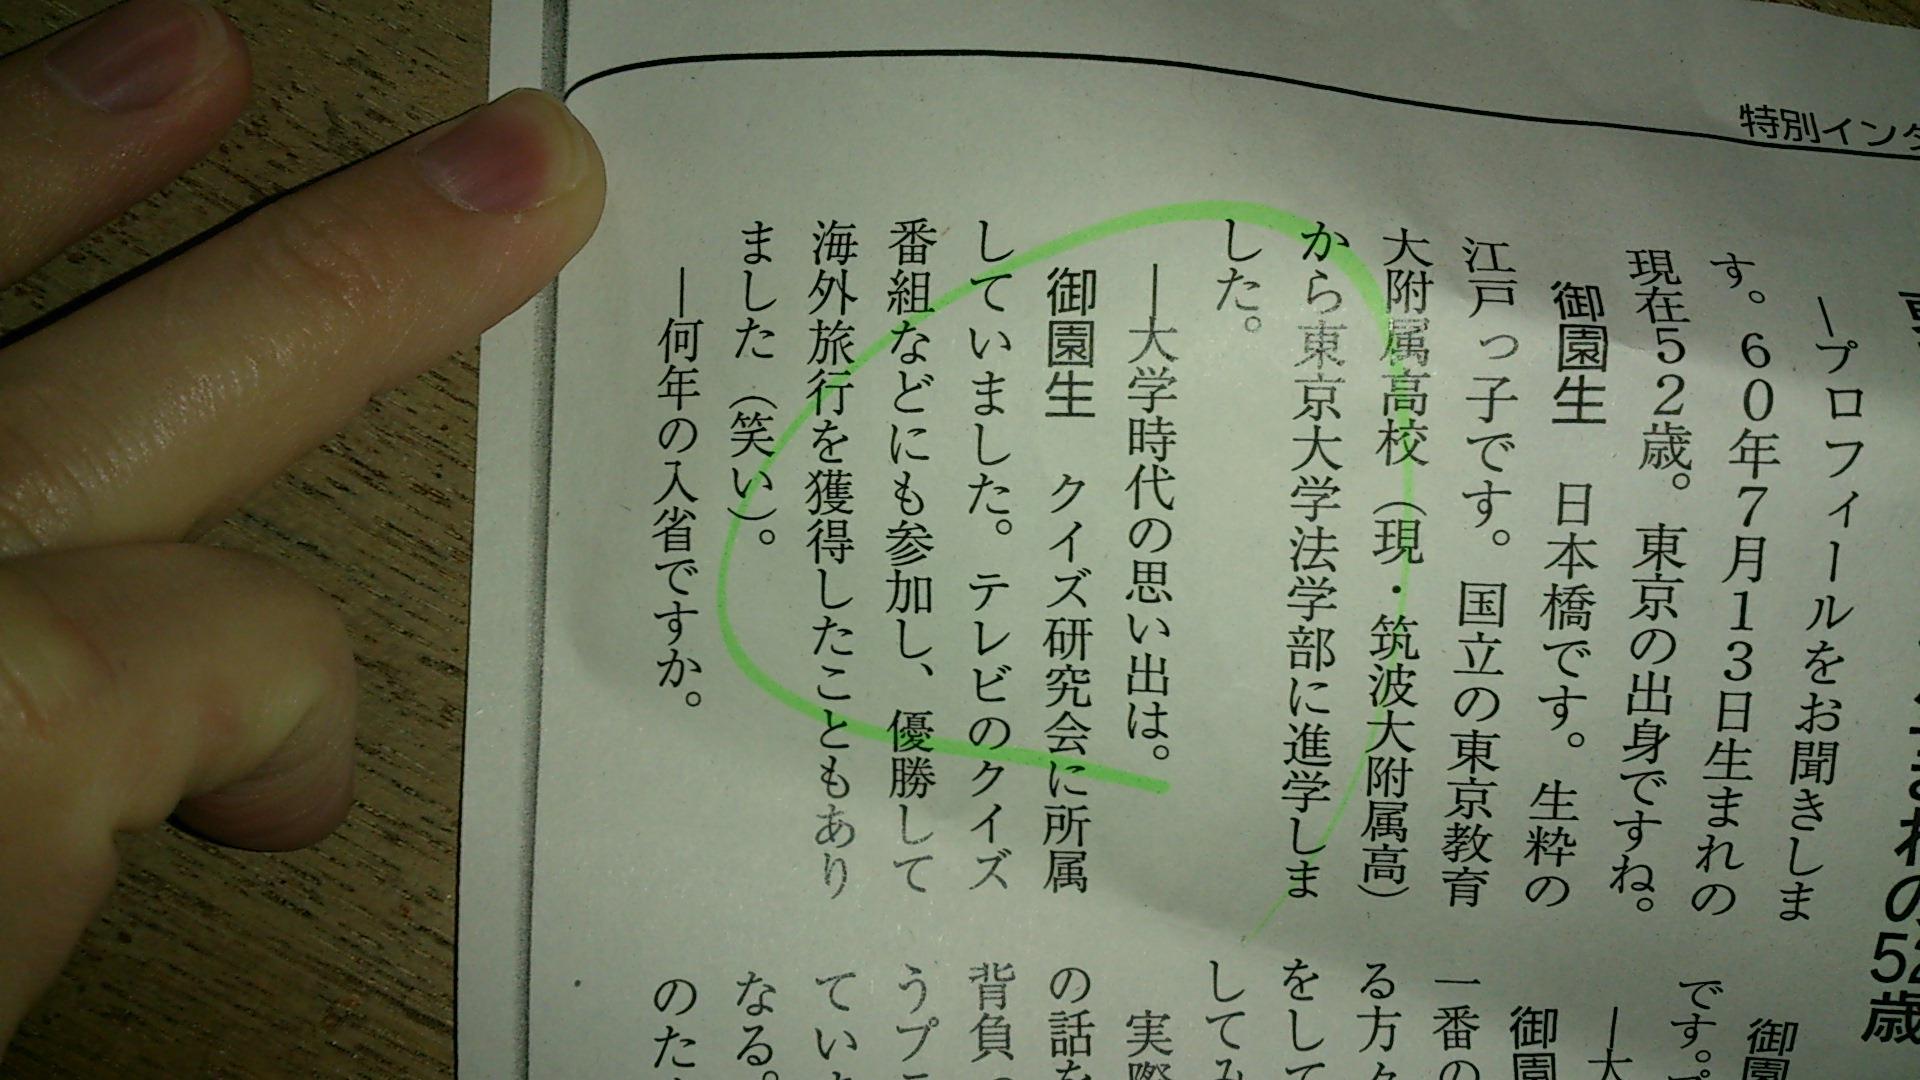 特別インタ
―プロフィールをお聞きしま
す。６０年７月１３日生まれの
現在５２歳。東京の出身ですね。
御園生　日本橋です。生粋の
江戸っ子です。国立の東京教育
大附属高校（現・筑波大附属高）
から東京大学法学部に進学しま
した。
―大学時代の思い出は。
御園生　クイズ研究会に所属
していました。テレビのクイズ
番組などにも参加し、優勝して
海外旅行を獲得したこともあり
ました（笑い）。
―何年の入省ですか。
れの52歳
御園
です。
―大
御園
一番の
る方々
をして
してみ
実際
の話を
背負
うプ
てい
なる。
のた